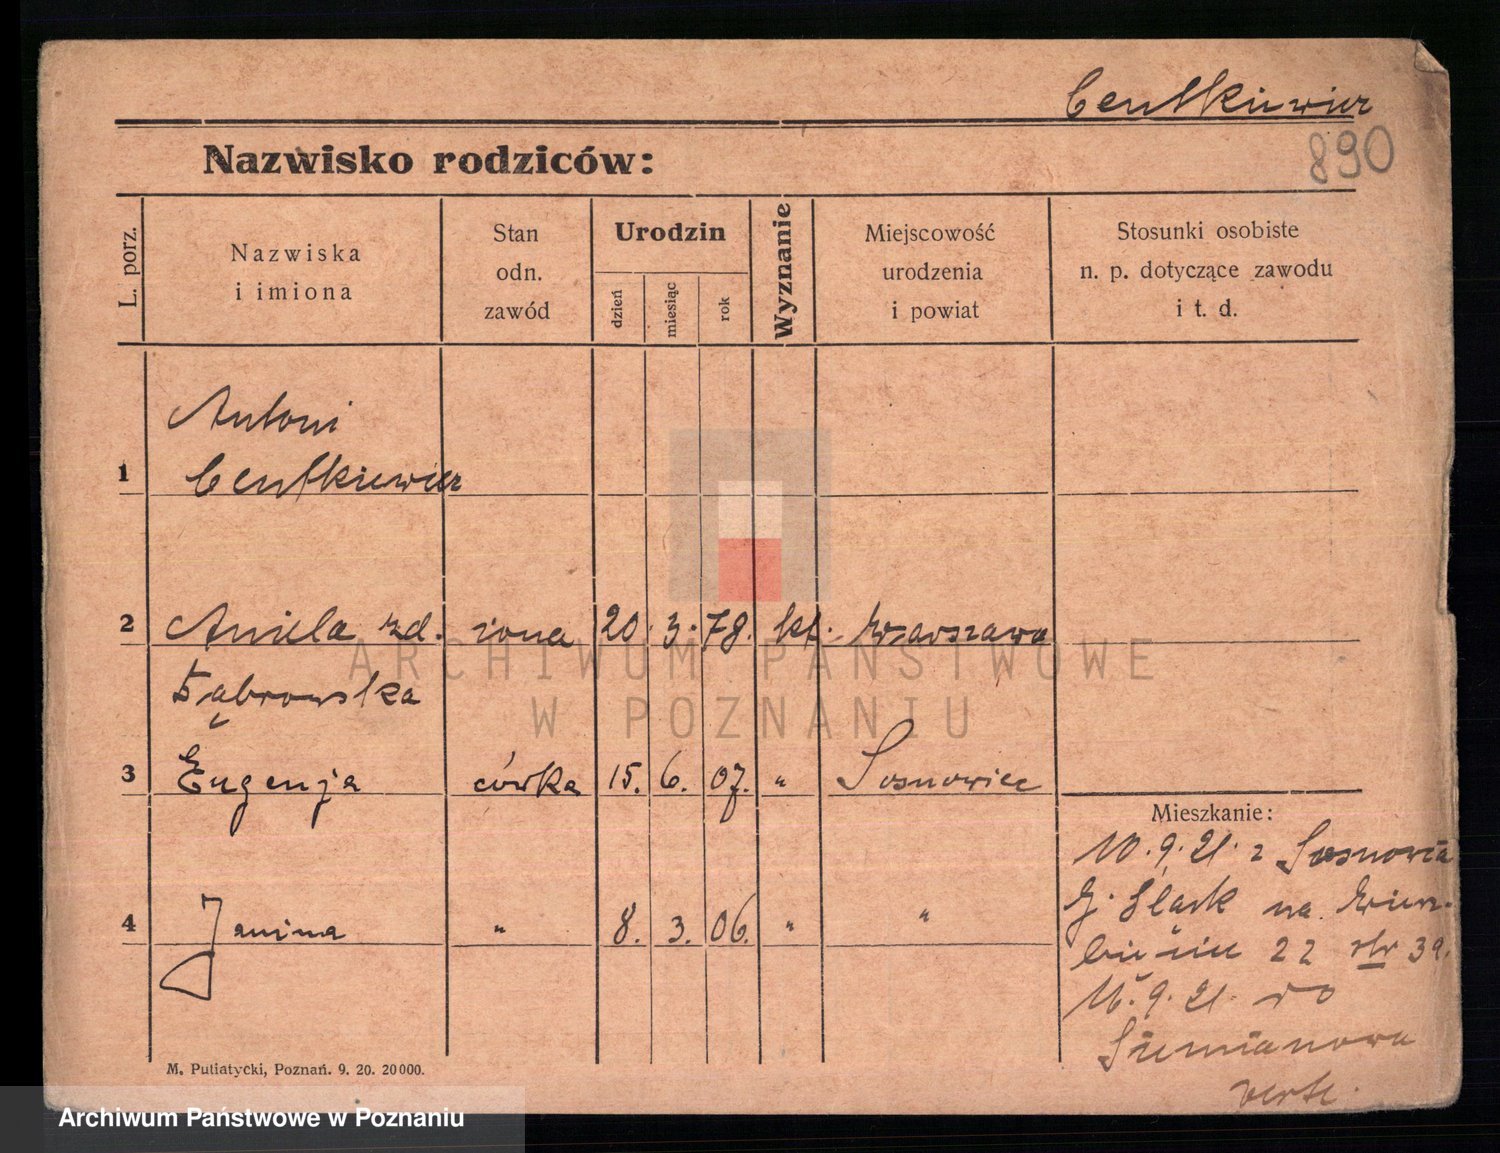 Centkiewicz
890
Nazwisko rodziców:
L. porz.
Nazwiska
i imiona
Stan
odn.
zawód
Urodzin
dzień
miesiąc
rok
Wyznanie
Miejscowość
urodzenia
i powiat
Stosunki osobiste
n. p. dotyczące zawodu
i t. d.
Antoni
1 Centkiewicz
2 Aniela zd. żona 20. 3. 78. kt. Warszawa
Dąbrowska
3 Eugenja córka 15. 6. 07. " Sosnowiec
Mieszkanie:
10. 9. 21. z Sosnowca
G. Śląsk na
4 Janina " 8. 3. 06. " "
22 str 39.
16. 9. 21. do
verte.
M. Putiatycki, Poznań. 9. 20. 20000.
ARCHIWUM PAŃSTWOWE
W POZNANIU
Archiwum Państwowe w Poznaniu